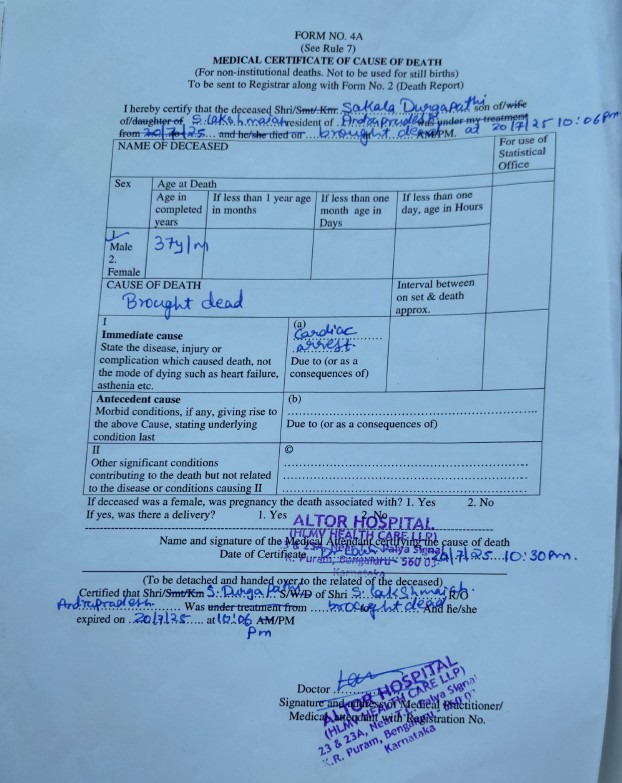 FORM NO. 4A
(See Rule 7)
MEDICAL CERTIFICATE OF CAUSE OF DEATH
(For non-institutional deaths. Not to be used for still births)
To be sent to Registrar along with Form No. 2 (Death Report)
I hereby certify that the deceased Shri/Smt/Km Sakala Durgapathi son of/wife
of/daughter of S. Lakshmaiah resident of Andrapradesh was under my treatment
from 20/7/25 and he/she died on brought dead AM/PM. at 20/7/25 10:06pm
NAME OF DECEASED
For use of
Statistical
Office
Sex
Age at Death
Age in
completed
years
If less than 1 year age
in months
If less than one
month age in
Days
If less than one
day, age in Hours
1
Male
2.
Female
37y/m
CAUSE OF DEATH
Brought dead
Interval between
on set & death
approx.
I
Immediate cause
State the disease, injury or
complication which caused death, not
the mode of dying such as heart failure,
asthenia etc.
(a)
Cardiac
arrest
Due to (or as a
consequences of)
Antecedent cause
Morbid conditions, if any, giving rise to
the above Cause, stating underlying
condition last
(b)
Due to (or as a consequences of)
II
Other significant conditions
contributing to the death but not related
to the disease or conditions causing II
©
If deceased was a female, was pregnancy the death associated with? 1. Yes 2. No
If yes, was there a delivery? 1. Yes 2. No
ALTOR HOSPITAL
(HLMV HEALTH CARE LLP)
Name and signature of the Medical Attendant certifying the cause of death
Palya Signal
Date of Certificate 20/7/25 10:30pm.
K.R. Puram, Bengaluru - 560 0
Karnataka
(To be detached and handed over to the related of the deceased)
Certified that Shri/Smt/Km S. Durga Pathi S/W/D of Shri S. Lakshmaiah R/O
Andrapradesh Was under treatment from brought dead And he/she
expired on 20/7/25 at 10:06 AM/PM
Pm
Doctor
Signature and address of Medical Practitioner/
Medical attendant with Registration No.
ALTOR HOSPITAL
(HLMV HEALTH CARE LLP)
23 & 23A, Near Palya Signal
K.R. Puram, Bengaluru - 560 0
Karnataka